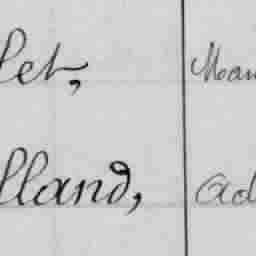 let, Man
lland, Ad